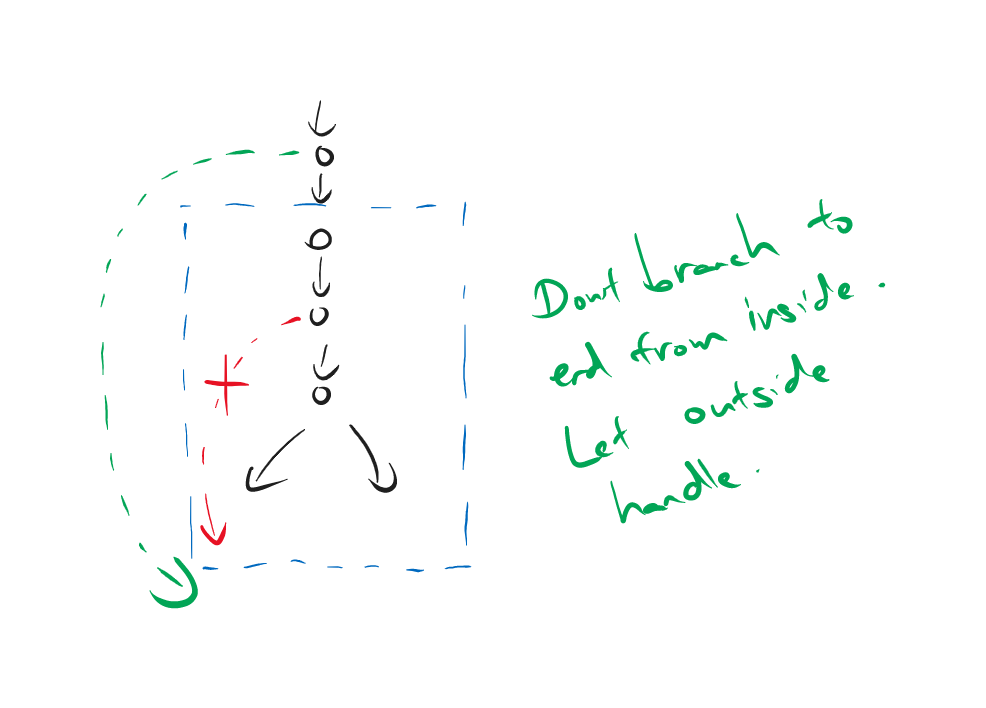 Dont branch to
end from inside.
Let outside
handle.